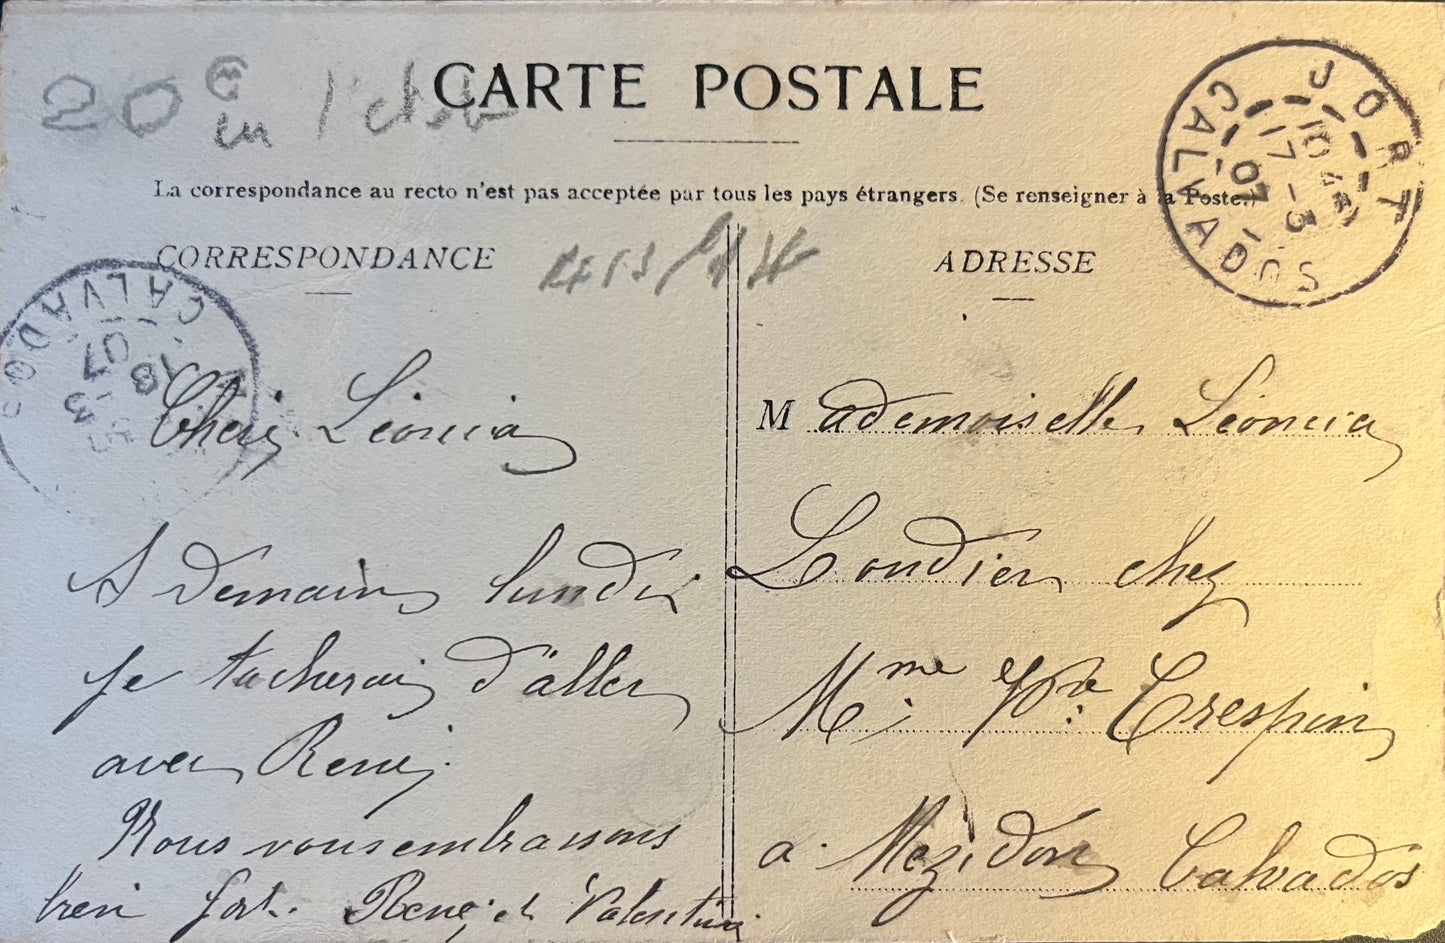 20c en l'état
CARTE POSTALE
La correspondance au recto n'est pas acceptée par tous les pays étrangers. (Se renseigner à la Poste.)
CORRESPONDANCE
ADRESSE
JORT
10 45
17 -3
07
CALVADOS
CALVADOS
18 -3
07
Cheri Léoncia
A Demain lundi
je tacherai d'aller
avec René.
Nous vous embrassons
bien fort. René et Valentine
Mademoiselle Léoncia
Londier chez
Mme Vve Crespin
a Mézidon Calvados